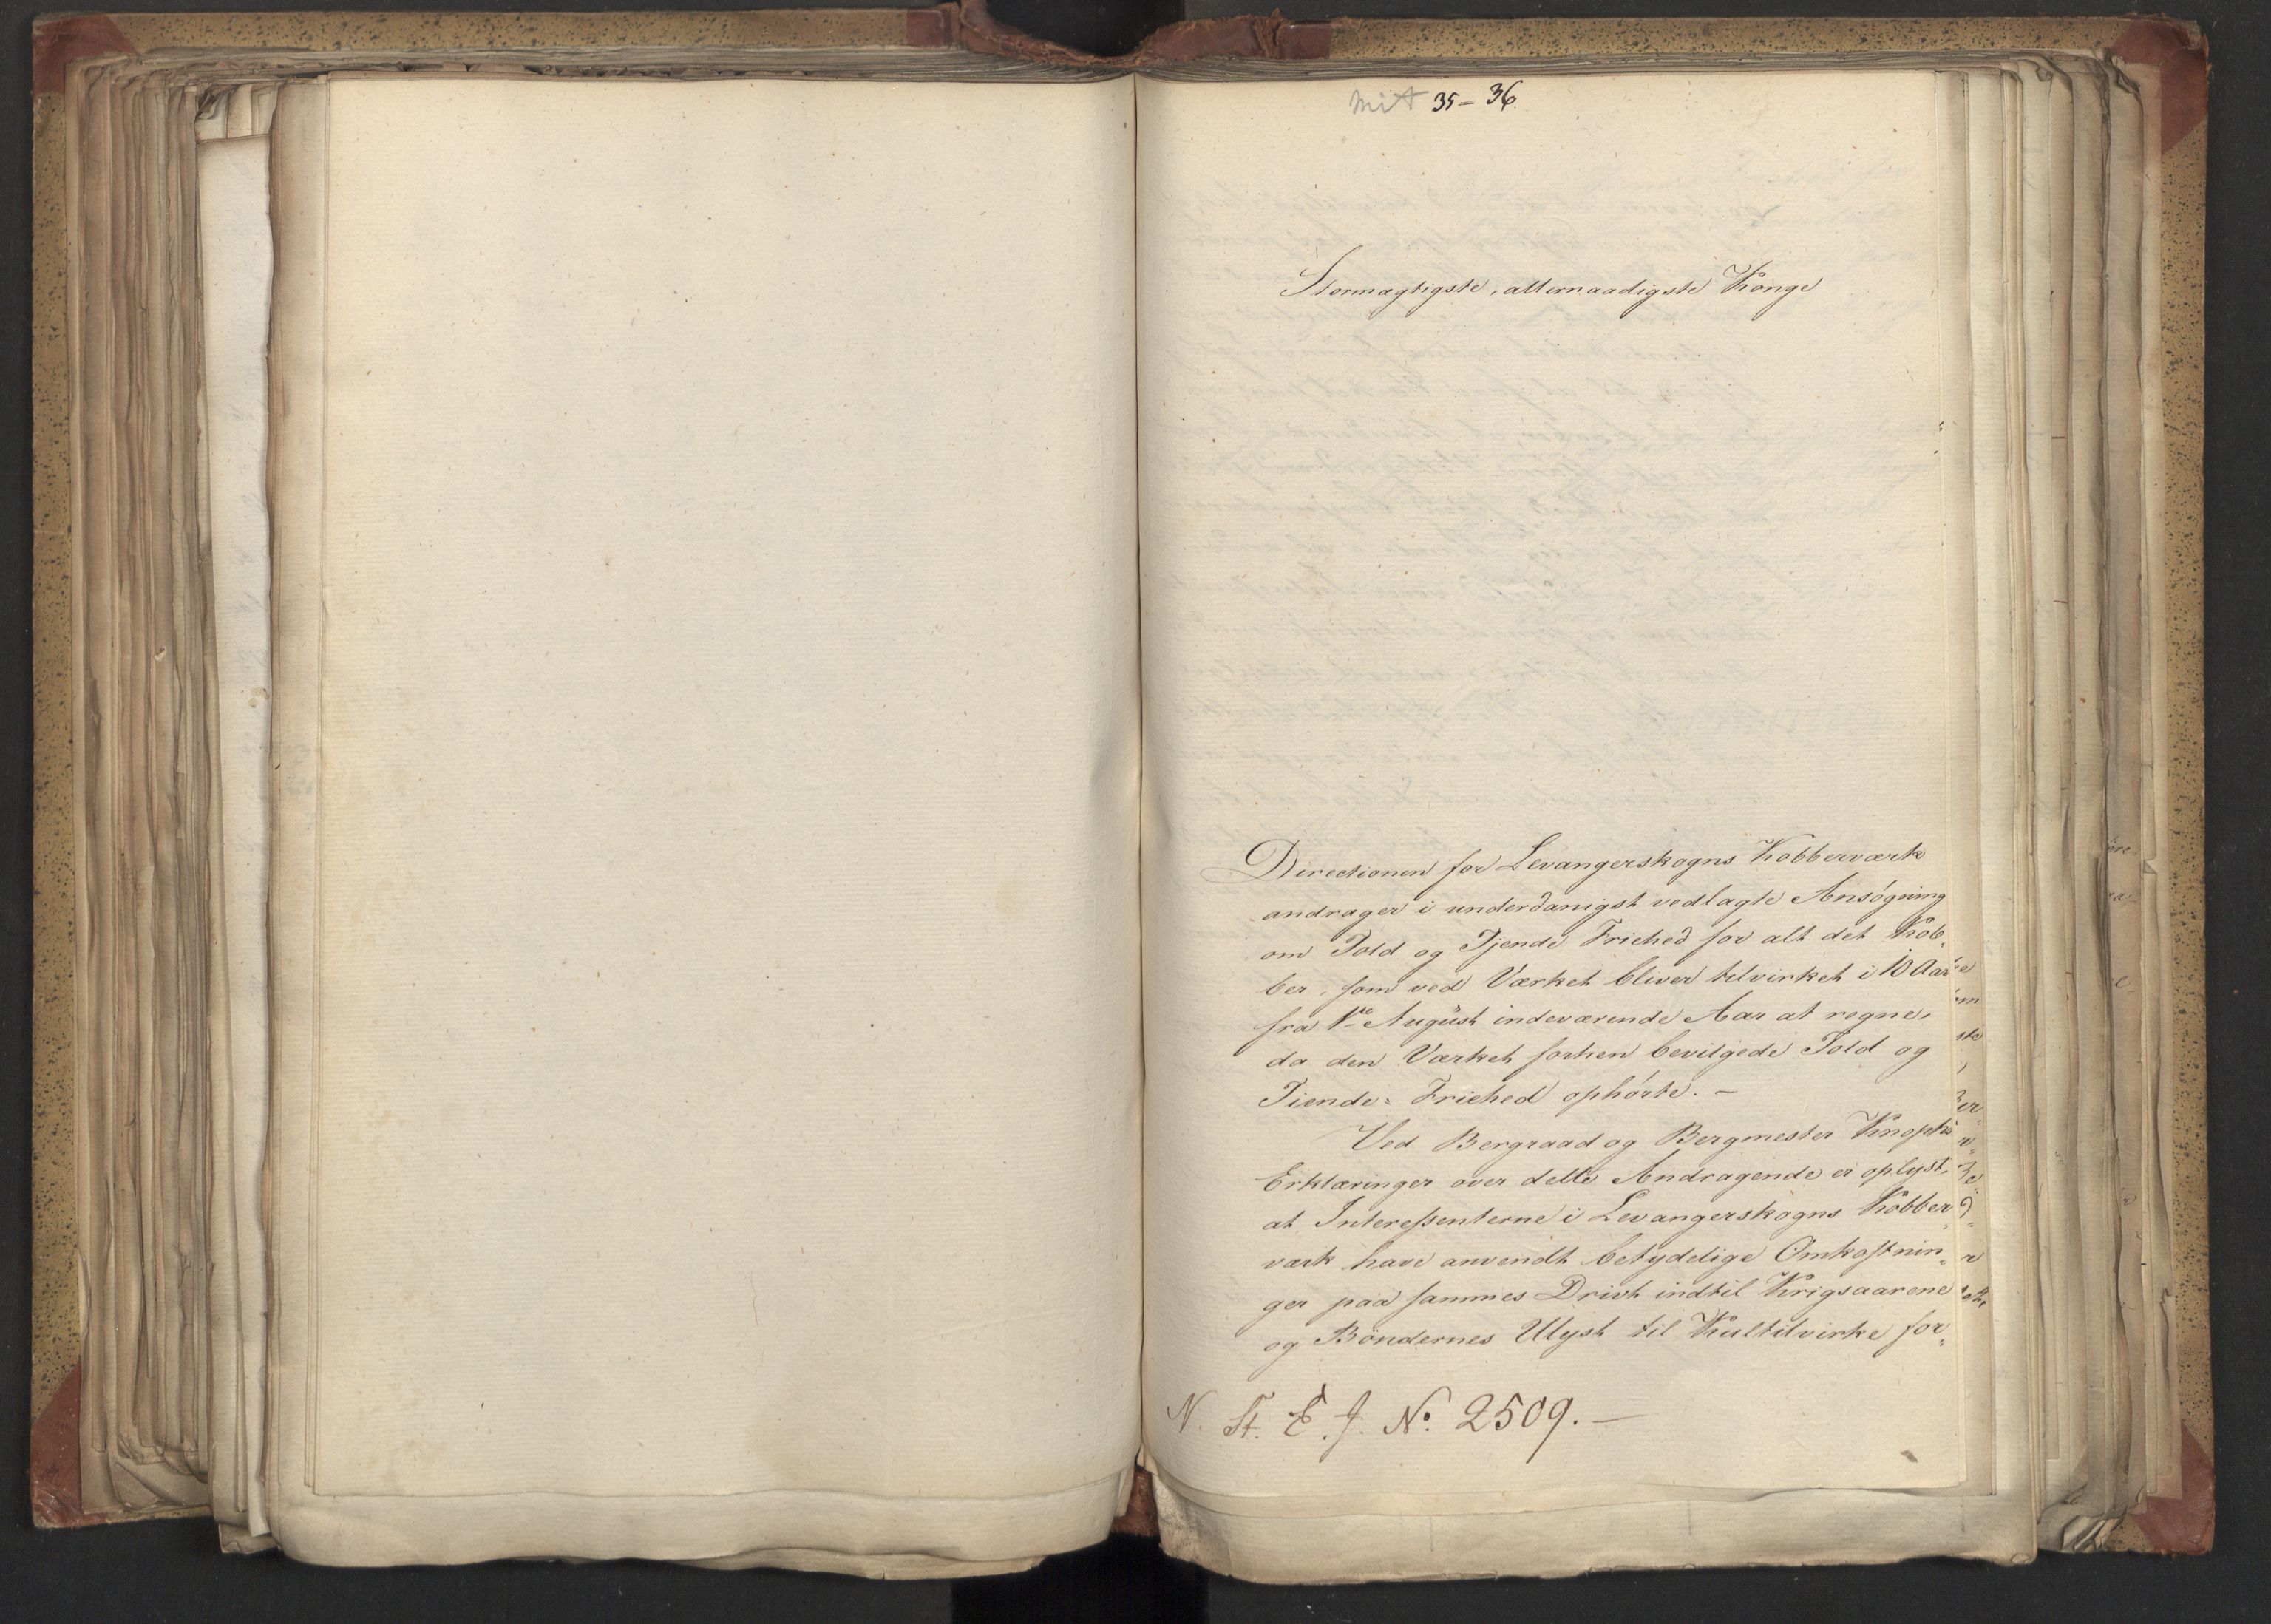 Mit 35–36
Stormægtigste, allernaadigste Konge
Directionen for Levangerskogns Kobberværk
andrager i underdanigst vedlagte Ansøgning
om Told og Tjende Friehed for alt det Kob„
ber, som ved Værket bliver tilvirket i 10 Aar
fra 1ste August indeværende Aar at regne,
da den Værket forhen bevilgede Told og
Tiende= Friehed ophørte. –
Ved Bergraad og Bergmester Knophs
Erklæringer over dette Andragende er oplyst,
at Interessenterne i Levangerskogns Kobber„
værk have anvendt betydelige Omkostnin„
ger paa sammes Drivt indtil Krigsaarene
og Bøndernes Ulyst til Kultilvirke for„
N. St. E. J. No. 2509. –